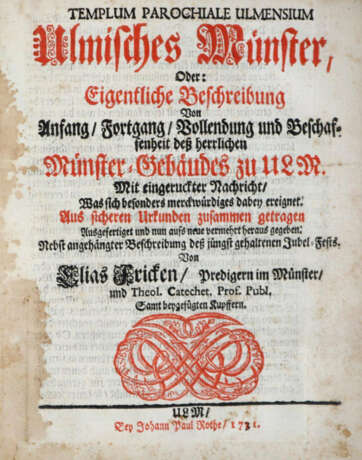 TEMPLUM PAROCHIALE ULMENSIUM
Ulmisches Münster,
Oder:
Eigentliche Beschreibung
Von
Anfang / Fortgang / Vollendung und Beschaf-
fenheit deß herrlichen
Münster-Gebäudes zu ULM.
Mit eingeruckter Nachricht /
Was sich besonders merckwürdiges dabey ereignet.
Aus sicheren Urkunden zusammen getragen
Ausgefertiget und nun aufs neue vermehrt heraus gegeben.
Nebst angehängter Beschreibung deß jüngst gehaltenen Jubel-Fests.
Von
Elias Fricken / Predigern im Münster /
und Theol. Catechet. Prof. Publ.
Samt beygefügten Kupffern.
ULM /
Bey Johann Paul Rothe / 1731.